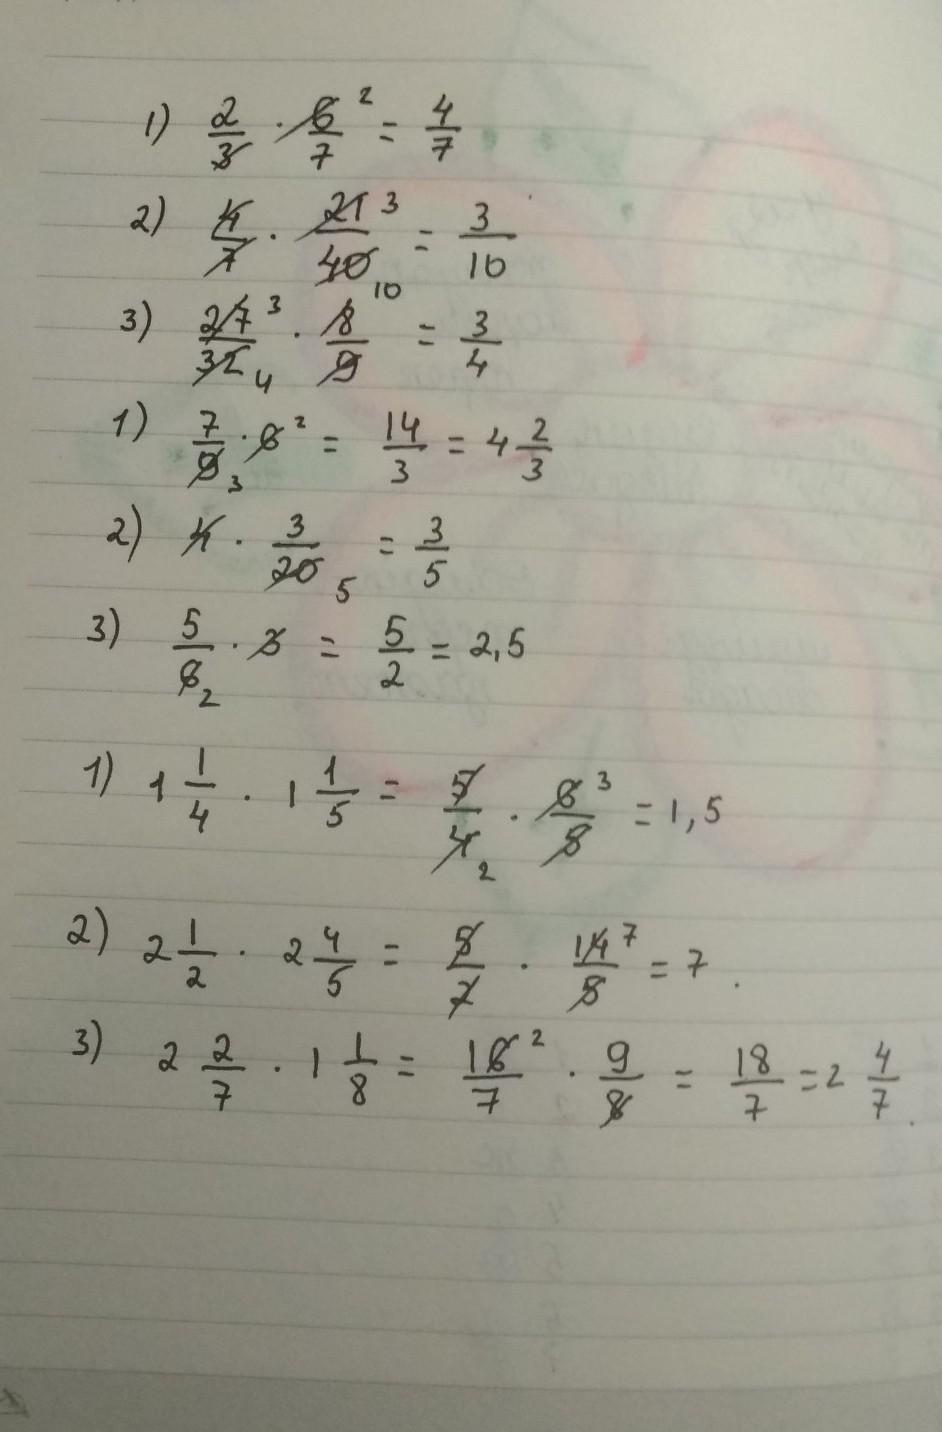 1) 2/3 · 6/7 ² = 4/7
2) 4/7 · 21/40 ³ ₁₀ = 3/10
3) 27/32 ³ ₄ · 8/9 = 3/4
1) 7/9 ₃ · 6 ² = 14/3 = 4 2/3
2) 4 · 3/20 ₅ = 3/5
3) 5/6 ₂ · 3 = 5/2 = 2,5
1) 1 1/4 · 1 1/5 = 5/4 ₂ · 6/5 ³ = 1,5
2) 2 1/2 · 2 4/5 = 5/2 · 14/5 ⁷ = 7.
3) 2 2/7 · 1 1/8 = 16/7 ² · 9/8 = 18/7 = 2 4/7.